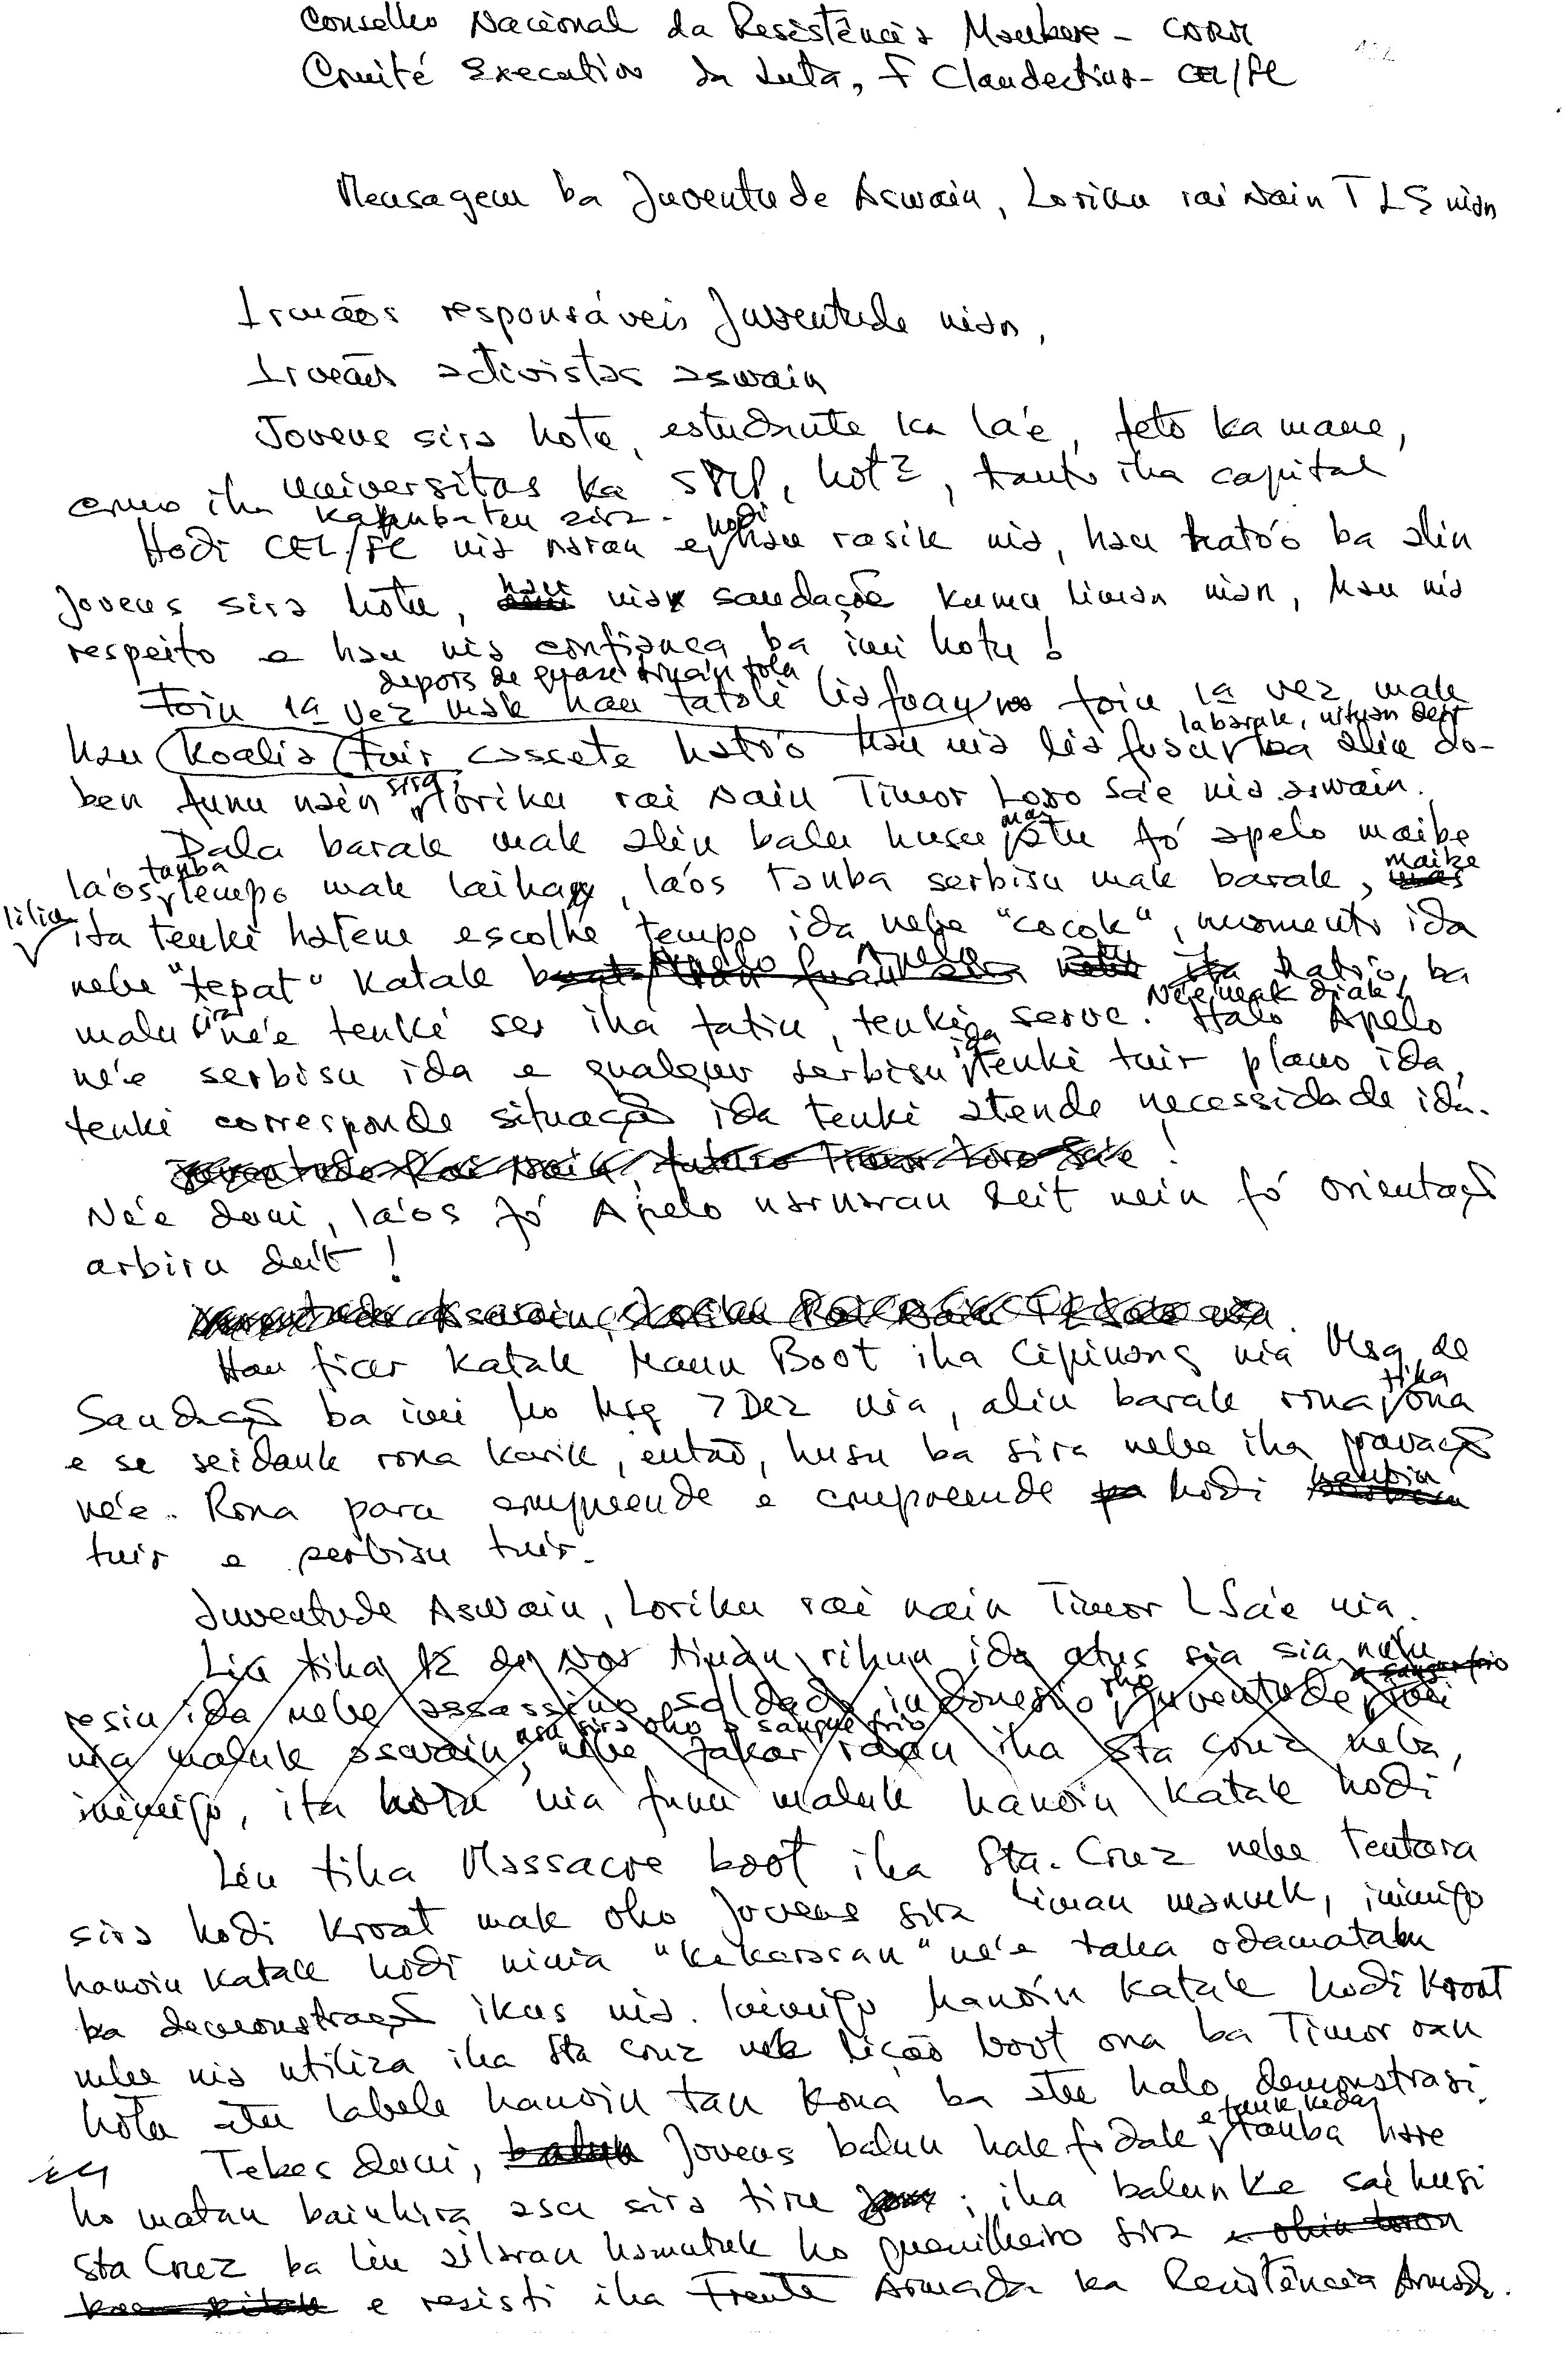 Conselho Nacional da Resistência Maubere - CNRM
Comité Executivo da Luta, F Clandestina - CEL/FC
Mensagem ba Juventude Aswain, Loriku rai Nain TLS nian
Irmãos responsáveis Juventude nian,
Irmãos activistas aswain
Jovens sira hotu, estudante ka la'e, feto ka mane,
universitas ka SMP, hotu, tanto iha capital
como iha kabubaten sira.
Hodi CEL/FC nia naran e, hodi hau rasik nia, hau hato'o ba alin
jovens sira hotu, hau nia saudação kumu liman nian, hau nia
respeito e hau nia confiança ba imi hotu!
depois de quase tinan tolu
Foin 1ª vez mak hau tatoli lia fuan no foin 1ª vez mak
labarak, nituan deit
hau koalia tuir cassete hato'o hau nia lia fuan ba alin do-
ben funu nain sira, loriku rai Nain Timor Loro Sa'e nia aswain.
Dala barak mak alin balu husu mai atu fó apelo maibe
la'os tanba tempo mak laiha, la'os tanba serbisu mak barak, maibe
ita tenki hatene escolhe tempo ida nebe "cocok", momento ida
nebe "tepat" katak Apelo nebe hato'o ba
malu sira ne'e tenki ser iha fatin, tenki serve. Ne'e mak diak! Halo Apelo
ne'e serbisu ida e qualquer serbisu ida tenki tuir plano ida,
tenki corresponde situação ida tenki atende necessidade ida.
Ne'e duni, la'os fó Apelo narnaran deit nein fó orientação
arbiru deit!
Hau ficar katak Maun Boot iha Cipinang nia Msg de
Saudação ba imi ho Msg 7 Dez nia, alin barak rona tiha ona
e se seidauk rona karik, então, husu ba sira nebe iha gravação
ne'e. Rona para compreende e compreende hodi hanoin
tuir e serbisu tuir.
Juventude Aswain, Loriku rai nain Timor L Sa'e nia.
Liu tiha 12 de Nov tinan rihun ida atus sia sia nulu
resin ida nebe assassino soldado indonesio oho juventude
nia maluk aswain, asu sira oho a sangue frio nebe fakar raan iha Sta Cruz neba,
inimigo, ita hotu nia funu maluk hanoin katak hodi
Liu tiha Massacre boot iha Sta. Cruz nebe Tentara
sira hodi kroat mak oho Jovens sira liman mamuk, inimigo
hanoin katak hodi ninia "kekerasan" ne'e taka odamatan
ba demonstração ikus nia. Inimigo hanoin katak hodi kroat
nebe nia utiliza iha Sta Cruz lição boot ona ba Timor oan
hotu atu labele hanoin tan kona ba atu halo demonstrasi.
Tebes duni, Jovens balun hakfodak e tauk kedas, tanba hare
ho matan bainhira asu sira tiru; iha balun ke sai husi
Sta Cruz ba liu ailaran hamutuk ho guerrilheiro sira
e resisti iha Frente Armada ka Resistência Armada.